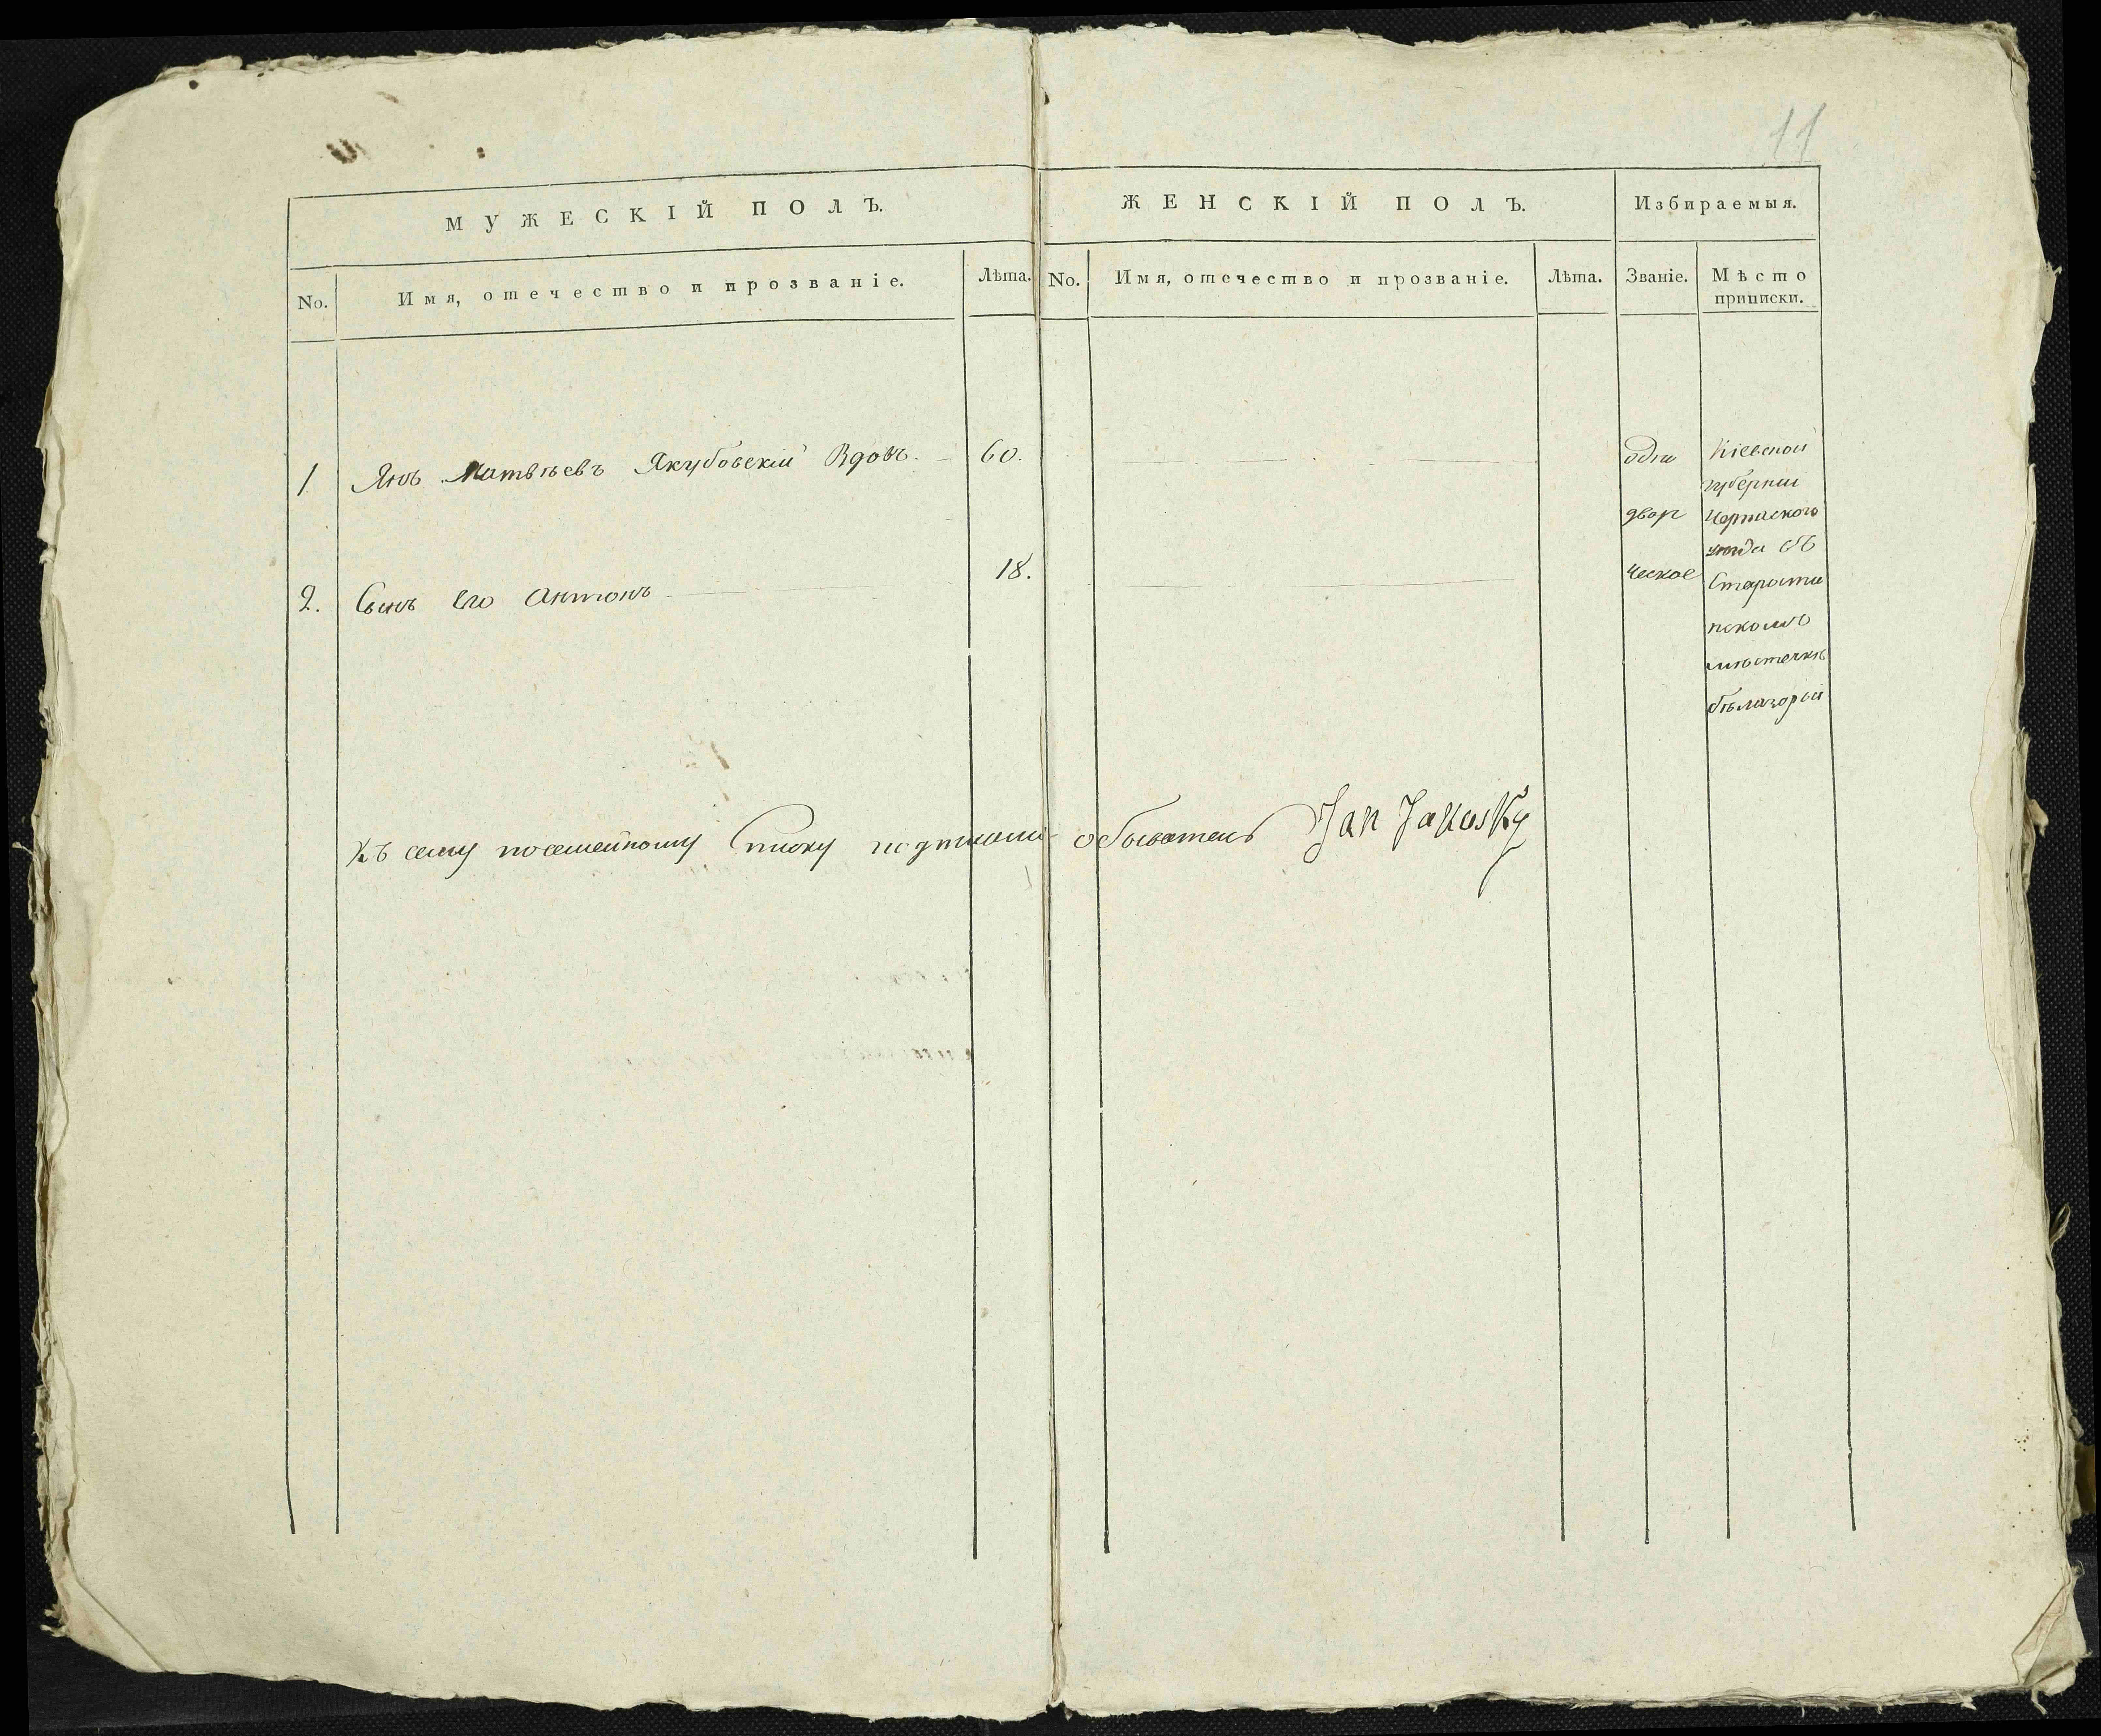 11
МУЖЕСКІЙ ПОЛЪ.
ЖЕНСКІЙ ПОЛЪ.
Избираемыя.
No.
Имя, отечество и прозваніе.
Лѣта.
No.
Имя, отечество и прозваніе.
Лѣта.
Званіе.
Мѣсто
приписки.
1 Янъ Матвѣевъ Якубовскій Вдовъ. 60.
2. Сынъ его Антонъ 18.
одно
двор
ческое
Кіевской
губерніи
Черкаского
уезда въ
Старости
нскомъ
мѣстечкѣ
бѣлазорьи
Къ сему посемейному Списку подписыи обыватель Jan Jakusky